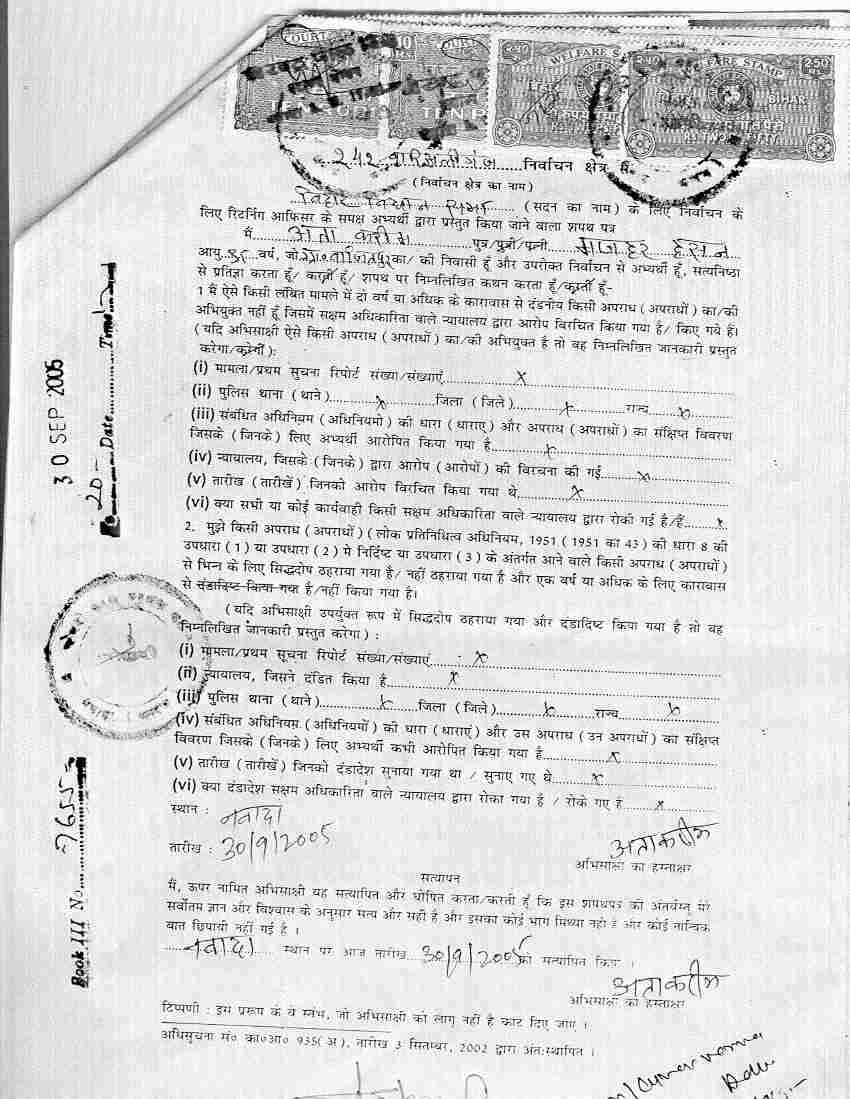 COURT
10
COURT
WELFARE STAMP
WELFARE STAMP
2.50
BIHAR
242 वारिसलीगंज निर्वाचन क्षेत्र से
(निर्वाचन क्षेत्र का नाम)
बिहार विधान सभा (सदन का नाम) के लिए निर्वाचन के
लिए रिटर्निंग आफिसर के समक्ष अभ्यर्थी द्वारा प्रस्तुत किया जाने वाला शपथ पत्र
मैं अता करीम पुत्र/पुत्री/पत्नी हसन
आयु वर्ष, जो का/की निवासी हूँ और उपरोक्त निर्वाचन से अभ्यर्थी हूँ, सत्यनिष्ठा
से प्रतिज्ञा करता हूँ/ करती हूँ/ शपथ पर निम्नलिखित कथन करता हूँ/करती हूँ-
1 मैं ऐसे किसी लंबित मामले में दो वर्ष या अधिक के कारावास से दंडनीय किसी अपराध (अपराधों) का/की
अभियुक्त नहीं हूँ जिसमें सक्षम अधिकारिता वाले न्यायालय द्वारा आरोप विरचित किया गया है/ किए गये हैं।
(यदि अभिसाक्षी ऐसे किसी अपराध (अपराधों) का/की अभियुक्त है तो वह निम्नलिखित जानकारी प्रस्तुत
करेगा/करेगी):
(i) मामला/प्रथम सुचना रिपोर्ट संख्या/संख्याएं x
(ii) पुलिस थाना (थाने) x जिला (जिले) x राज्य x
(iii) संबंधित अधिनियम (अधिनियमो) की धारा (धाराए) और अपराध (अपराधों) का संक्षिप्त विवरण
जिसके (जिनके) लिए अभ्यर्थी आरोपित किया गया है x
(iv) न्यायालय, जिसके (जिनके) द्वारा आरोप (आरोपों) की विरचना की गई x
(v) तारीख (तारीखें) जिनको आरोप विरचित किया गया थे x
(vi) क्या सभी या कोई कार्यवाही किसी सक्षम अधिकारिता वाले न्यायालय द्वारा रोकी गई है/हैं x
2. मुझे किसी अपराध (अपराधों) (लोक प्रतिनिधित्व अधिनियम, 1951 (1951 का 43) की धारा 8 की
उपधारा (1) या उपधारा (2) मे निर्दिष्ट या उपधारा (3) के अंतर्गत आने वाले किसी अपराध (अपराधों)
से भिन्न के लिए सिद्धदोष ठहराया गया है/ नहीं ठहराया गया है और एक वर्ष या अधिक के लिए कारावास
से दंडादिष्ट किया गया है/नहीं किया गया है।
(यदि अभिसाक्षी उपर्युक्त रूप में सिद्धदोष ठहराया गया और दंडादिष्ट किया गया है तो वह
निम्नलिखित जानकारी प्रस्तुत करेगा) :
(i) मामला/प्रथम सूचना रिपोर्ट संख्या/संख्याएं x
(ii) न्यायालय, जिसने दंडित किया है x
(iii) पुलिस थाना (थाने) x जिला (जिले) x राज्य x
(iv) संबंधित अधिनियम (अधिनियमों) की धारा (धाराएं) और उस अपराध (उन अपराधों) का संक्षिप्त
विवरण जिसके (जिनके) लिए अभ्यर्थी कभी आरोपित किया गया है x
(v) तारीख (तारीखें) जिनको दंडादेश सुनाया गया था / सुनाए गए थे x
(vi) क्या दंडादेश सक्षम अधिकारिता वाले न्यायालय द्वारा रोका गया है / रोके गए हैं x
स्थान : नवादा
तारीख : 30/9/2005
अता करीम
अभिसाक्षी का हस्ताक्षर
सत्यापन
मैं, ऊपर नामित अभिसाक्षी यह सत्यापित और घोषित करता/करती हूँ कि इस शपथपत्र की अंतर्वस्तु मेरे
सर्वोतम ज्ञान और विश्वास के अनुसार सत्य और सही है और इसका कोई भाग मिथ्या नही है और कोई तात्विक
बात छिपायी नहीं गई है ।
नवादा स्थान पर आज तारीख 30/9/2005 को सत्यापित किया ।
अता करीम
अभिसाक्षी का हस्ताक्षर
टिप्पणी : इस प्ररूप के वे स्तंभ, जो अभिसाक्षी को लागू नहीं है काट दिए जाए ।
अधिसूचना सं० का०आ० 935(अ), तारीख 3 सितम्बर, 2002 द्वारा अंतःस्थापित ।
30 SEP 2005
20- Date Time
Book III No. 7655